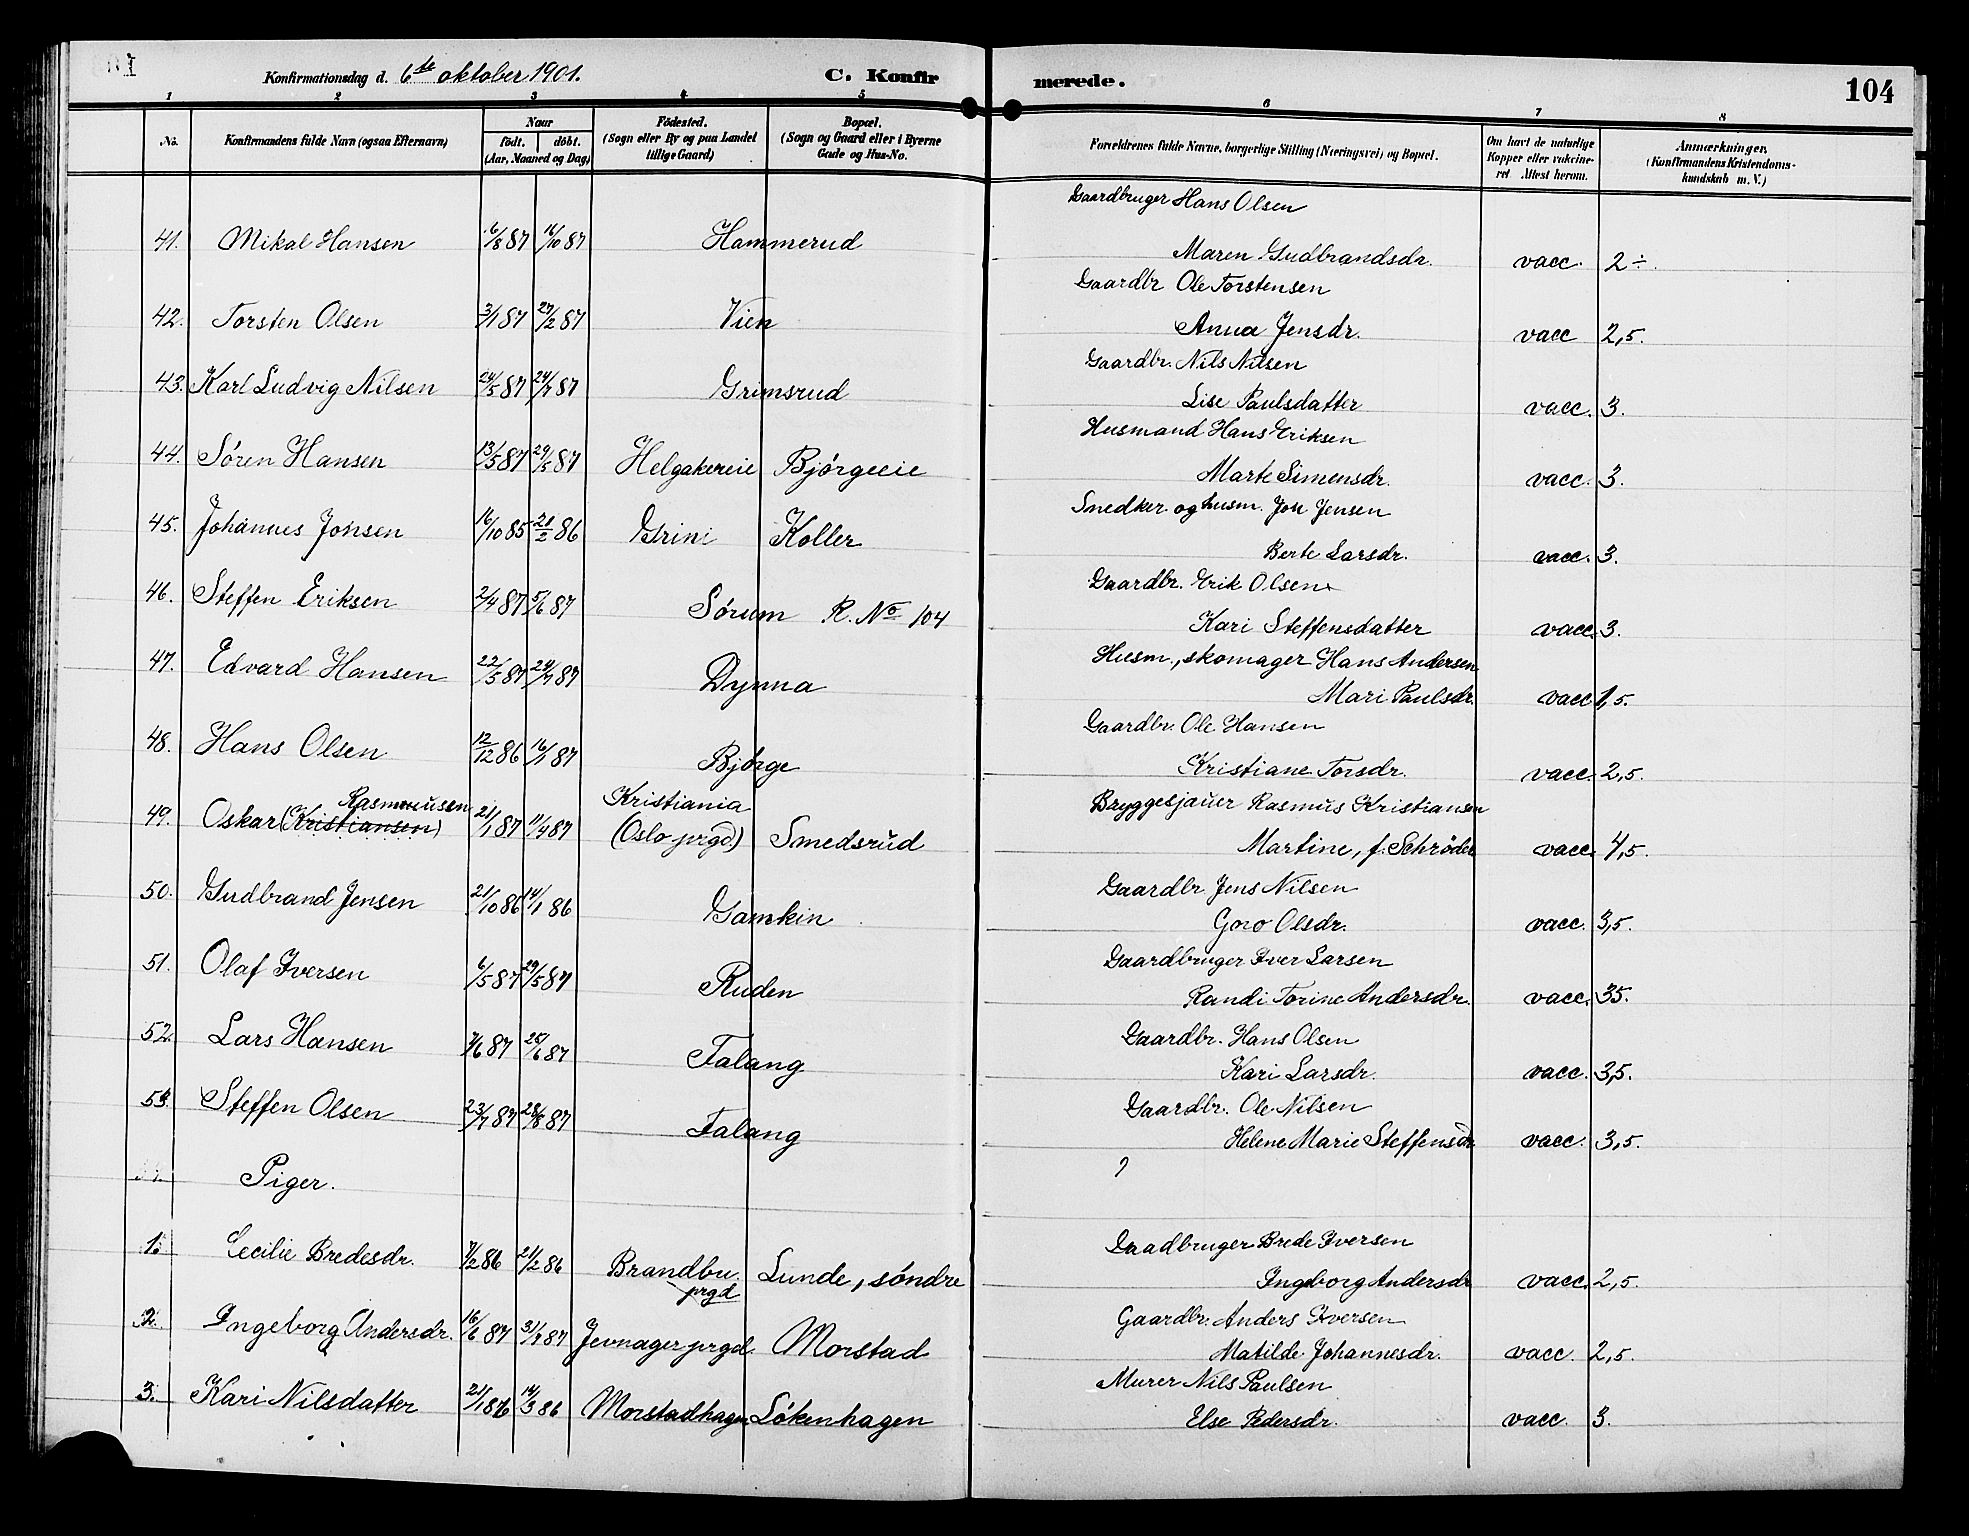 Konfirmationsdag d. 6te oktober 1901. C. Konfirmerede. 104
1 2 3 4 5 6 7 8
No. Konfirmandens fulde Navn (ogsaa Efternavn) Naar født. døbt. (Aar, Maaned og Dag) Fødested. (Sogn eller By og paa Landet tillige Gaard) Bopæl. (Sogn og Gaard eller i Byerne Gade og Hus-No. Forældrenes fulde Navne, borgerlige Stilling (Næringsvei) og Bopæl. Om havt de naturlige Kopper eller vakcineret Attest herom. Anmærkninger. (Konfirmandens Kristendomskundskab m. V.)
Gaardbruger Hans Olsen
41. Mikal Hansen 6/8 87 16/10 87 Hammerud Maren Gudbrandsdr. vacc. 2÷.
Gaardbr Ole Torstensen
42. Torsten Olsen 3/1 87 27/2 87 Vien Anna Jensdr. vacc 2,5.
Gaardbr. Nils Nilsen
43. Karl Ludvig Nilsen 24/5 87 24/7 87 Grimsrud Lise Paulsdatter vacc. 3.
Husmand Hans Eriksen
44. Søren Hansen 13/5 87 29/5 87 Helgakereie Bjørgeeie Marte Simensdr. vacc. 3.
Snedker og husm. Jon Jensen
45. Johannes Jonsen 16/10 85 21/2 86 Grini Koller Berte Larsdr. vacc. 3.
Gaardbr. Erik Olsen
46. Steffen Eriksen 2/4 87 5/6 87 Sørum R. No 104 Kari Steffensdatter vacc. 3.
Husm., skomager Hans Andersen
47. Edvard Hansen 22/5 87 24/7 87 Dynna Mari Paulsdr. vacc 1,5.
Gaardbr. Ole Hansen
48. Hans Olsen 12/12 86 16/1 87 Bjørge Kristiane Torsdr. vacc. 2,5.
Rasmussen Kristiania Bryggesjauer Rasmus Kristiansen
49. Oskar (Kristiansen) 21/1 87 11/4 87 (Oslo prgd.) Smedsrud Martine, f. Schrøder vacc. 4,5.
Gaardbr. Jens Nilsen
50. Gudbrand Jensen 21/10 86 14/1 86 Gamkin Goro Olsdr. vacc. 3,5.
Gaardbruger Iver Larsen
51. Olaf Iversen 6/5 87 29/5 87 Ruden Randi Torine Andersdr. vacc. 35.
Gaardbr. Hans Olsen
52. Lars Hansen 7/6 87 26/6 87 Falang Kari Larsdr. vacc. 3,5.
Gaardbr. Ole Nilsen
53. Steffen Olsen 23/7 87 28/8 87 Falang Helene Marie Steffensdr vacc. 3,5.
Piger.
Gaadbruger Brede Iversen
1. Cecilie Bredesdr. 7/2 86 21/2 86 Brandbu prgd Lunde, søndre Ingeborg Andersdr vacc. 2,5
Gaardbr. Anders Iversen
2. Ingeborg Andersdr. 16/6 87 31/7 87 Jevnager prgd. Morstad Matilde Johannesdr. vacc. 2,5.
Murer Nils Paulsen
3. Kari Nilsdatter 21/1 86 14/3 86 Morstadhagen Løkenhagen Else Pedersdr. vacc. 3.